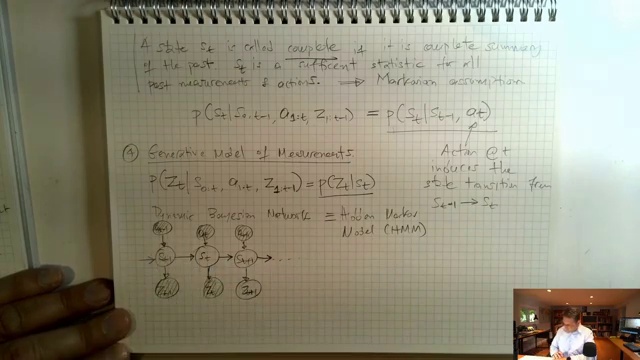 A state St is called complete if it is complete summary
of the past St is a sufficent statistic for all
past measurements & actions. ⟹ Markovian assumption
p(St|S0:t-1, a1:t, Z1:t-1) = p(St|St-1, at)
Action @ t
induces the
state transition from
St-1 → St
④ Generative Model of Measurements
p(Zt|S0:t, a1:t, Z1:t-1) = p(Zt|St)
Dynamic Bayesian Network ≡ Hidden Markov
Model (HMM)
at-1 at at+1
St-1 St St+1 ...
Zt-1 Zt Zt+1